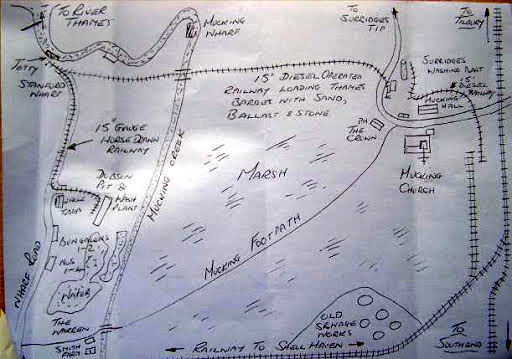 TO RIVER
THAMES
MUCKING
WHARF
TO
SURRIDGES
TIP
TO
TILBURY
JETTY
STANFORD
WHARF
15" DIESEL OPERATED
RAILWAY LOADING THAMES
BARGES WITH SAND,
BALLAST & STONE
SURRIDGES
WASHING PLANT
15"
DIESEL
RAILWAY
MUCKING
HALL
PH
THE
CROWN
15" GAUGE
HORSE DRAWN
RAILWAY
MUCKING CREEK
MARSH
MUCKING
CHURCH
PIT &
WASH
PLANT
BUNGALOWS
NOS
1-4
MUCKING FOOTPATH
WHARF ROAD
WATER
THE
WARREN
SMITH
FARM
OLD
SEWAGE
WORKS
RAILWAY TO SHELL HAVEN
TO
SOUTHEND